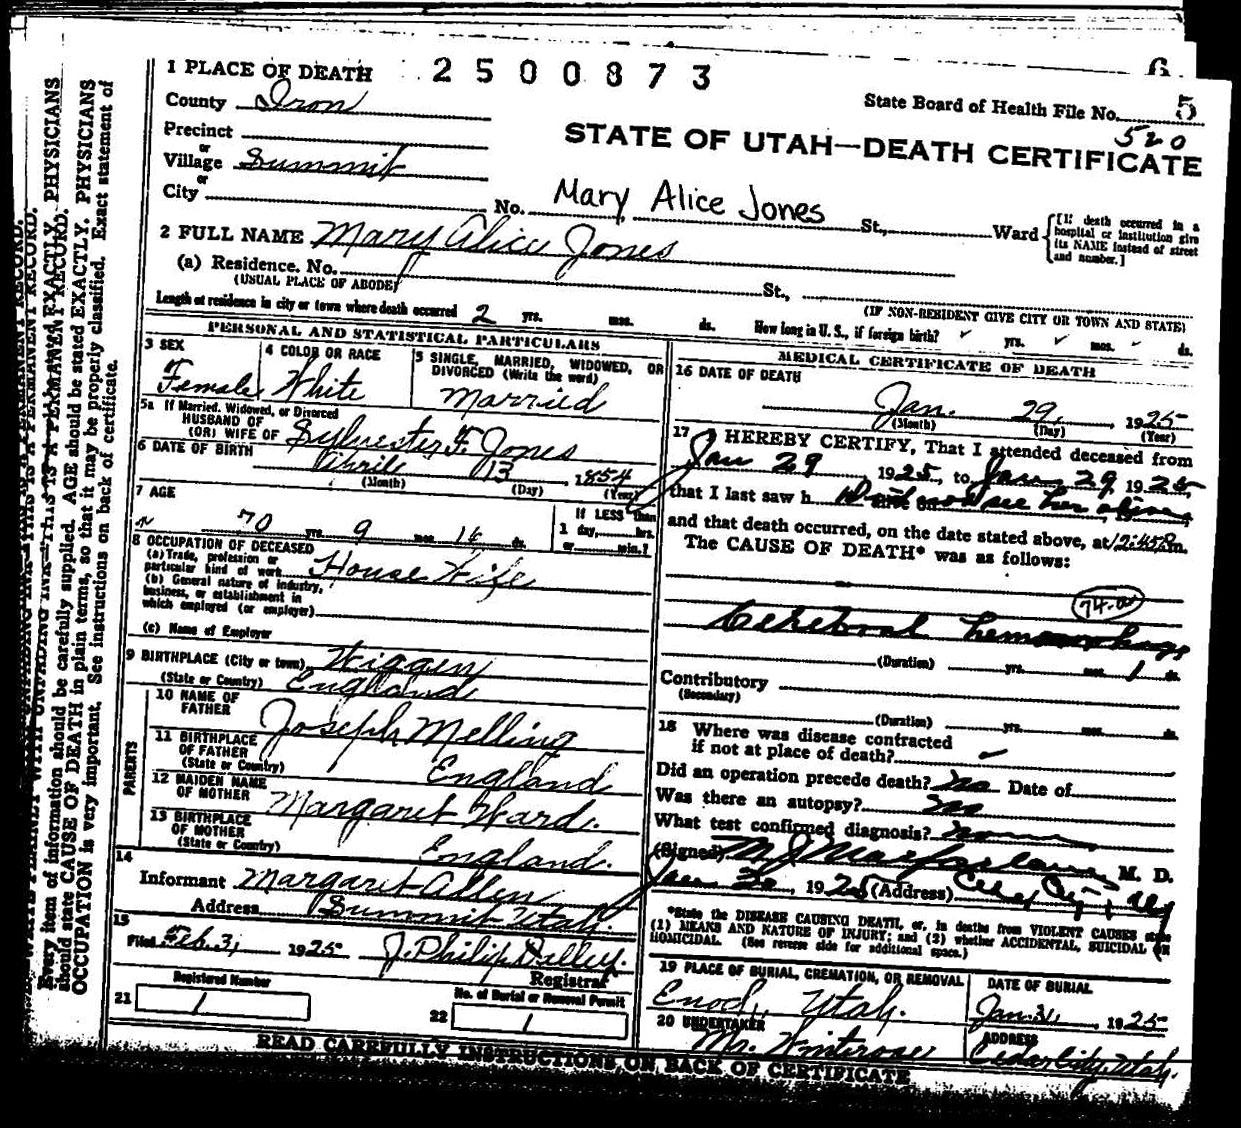 6
1 PLACE OF DEATH 2500873
State Board of Health File No. 5
520
County Iron
STATE OF UTAH—DEATH CERTIFICATE
Precinct
or
Village Summit
or
City
No. Mary Alice Jones St., Ward
[If death occurred in a
hospital or institution give
its NAME instead of street
and number.]
2 FULL NAME Mary Alice Jones
(a) Residence. No. St.,
(USUAL PLACE OF ABODE)
(IF NON-RESIDENT GIVE CITY OR TOWN AND STATE)
Length of residence in city or town where death occurred 2 yrs. mos. ds. How long in U. S., if foreign birth? yrs. mos. ds.
PERSONAL AND STATISTICAL PARTICULARS
3 SEX
Female
4 COLOR OR RACE
White
5 SINGLE, MARRIED, WIDOWED, OR
DIVORCED (Write the word)
Married
5a If Married, Widowed, or Divorced
HUSBAND OF
(OR) WIFE OF Sylvester F. Jones
6 DATE OF BIRTH April 13 1854
(Month) (Day) (Year)
7 AGE
70 yrs. 9 mos. 16 ds.
If LESS than
1 day, hrs.
or min.?
8 OCCUPATION OF DECEASED
(a) Trade, profession or
particular kind of work House Wife
(b) General nature of industry,
business, or establishment in
which employed (or employer)
(c) Name of Employer
9 BIRTHPLACE (City or town) Wiggen
(State or Country) England
PARENTS
10 NAME OF
FATHER Joseph Melling
11 BIRTHPLACE
OF FATHER
(State or Country) England
12 MAIDEN NAME
OF MOTHER Margaret Ward.
13 BIRTHPLACE
OF MOTHER
(State or Country) England.
14
Informant Margaret Allen
Address Summit Utah.
15
Filed Feb. 3, 1925 J. Philip Dalley.
Registrar
Registered Number
21 1
No. of Burial or Removal Permit
22 1
MEDICAL CERTIFICATE OF DEATH
16 DATE OF DEATH
Jan. 29, 1925
(Month) (Day) (Year)
17 I HEREBY CERTIFY, That I attended deceased from
Jan 29 1925, to Jan 29, 1925
that I last saw h Did not see her alive
and that death occurred, on the date stated above, at 12:45 P m.
The CAUSE OF DEATH* was as follows:
74-a
Cerebral hemorrhage
(Duration) yrs. mos. 1 ds.
Contributory
(Secondary)
(Duration) yrs. mos. ds.
18 Where was disease contracted
if not at place of death?
Did an operation precede death? no Date of
Was there an autopsy? no
What test confirmed diagnosis?
(Signed) M J Macfarlane, M. D.
Jan 30, 1925 (Address) Cedar City, Utah
*State the DISEASE CAUSING DEATH, or, in deaths from VIOLENT CAUSES state
(1) MEANS AND NATURE OF INJURY; and (2) whether ACCIDENTAL, SUICIDAL OR
HOMICIDAL. (See reverse side for additional space.)
19 PLACE OF BURIAL, CREMATION, OR REMOVAL
Enoch, Utah.
DATE OF BURIAL
Jan. 31, 1925
20 UNDERTAKER
Mr. Winterose
ADDRESS
Cedar City, Utah.
READ CAREFULLY INSTRUCTIONS ON BACK OF CERTIFICATE
Every item of information should be carefully supplied. AGE should be stated EXACTLY. PHYSICIANS
should state CAUSE OF DEATH in plain terms, so that it may be properly classified. Exact statement of
OCCUPATION is very important. See instructions on back of certificate.